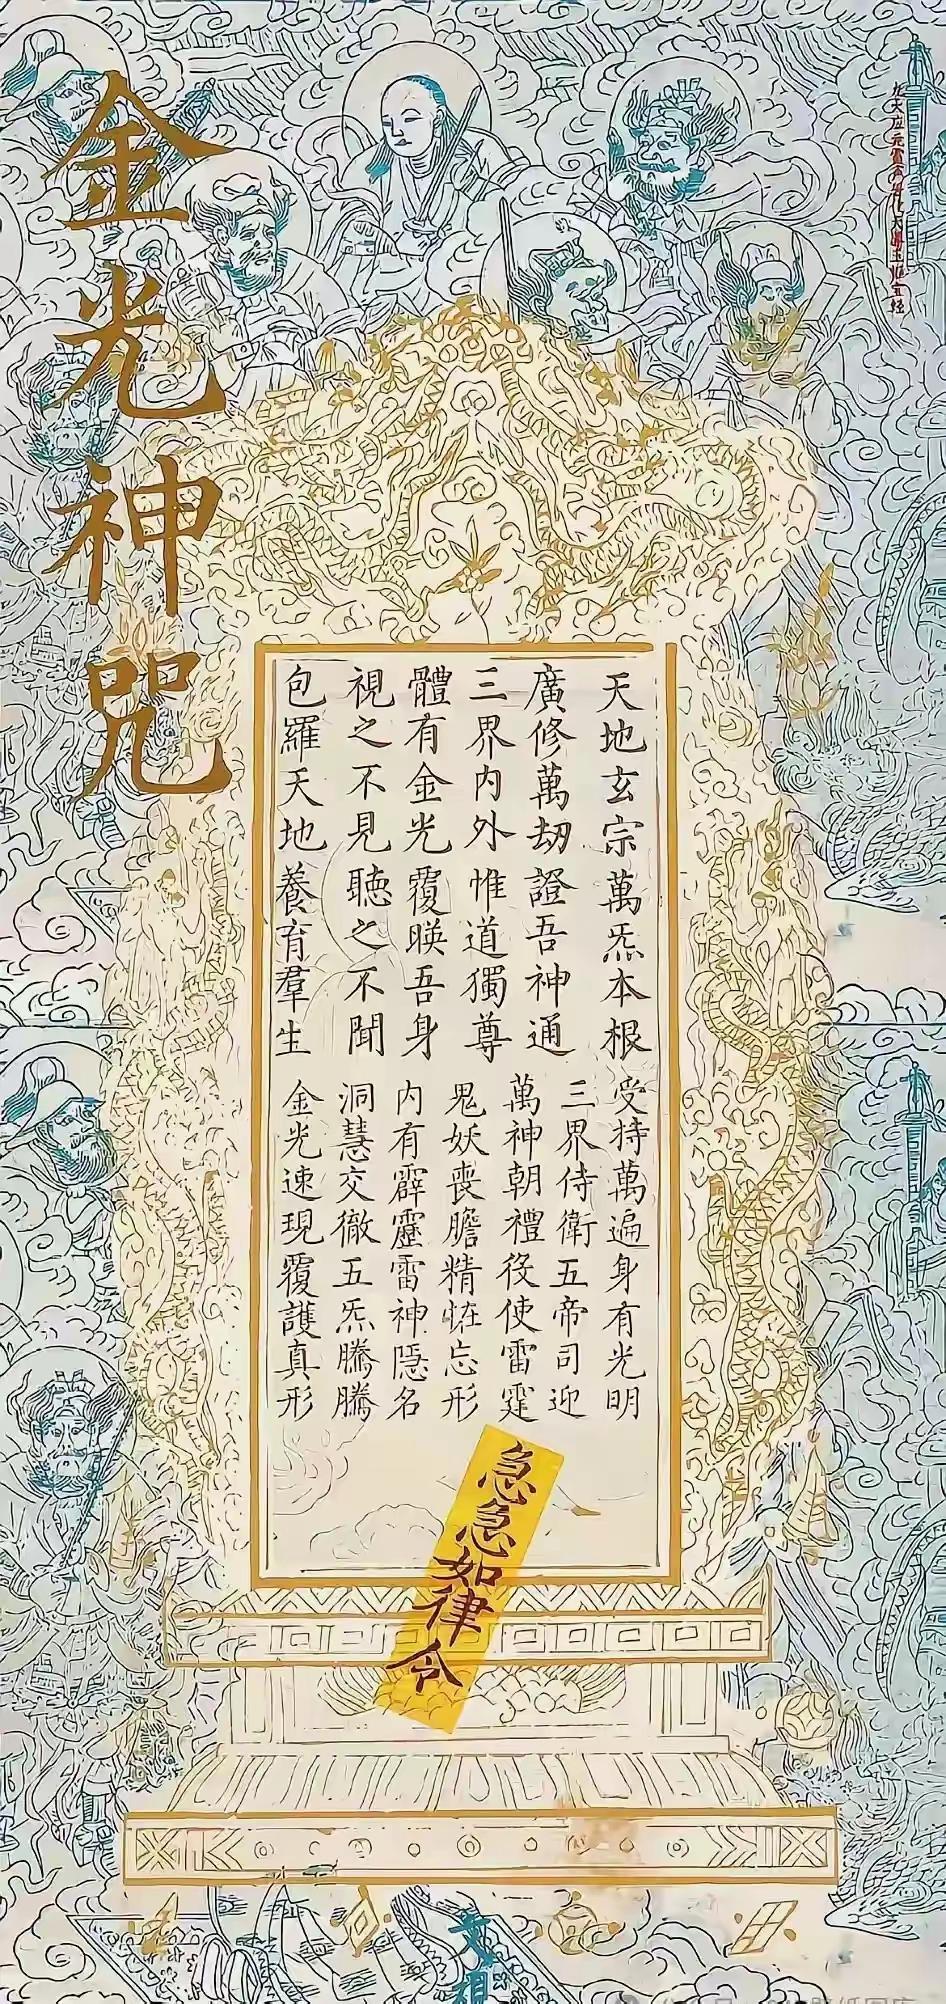 金光神咒
九天应元雷声普化天尊玉枢宝经
天地玄宗萬炁本根
廣修萬劫證吾神通
三界内外惟道獨尊
體有金光覆暎吾身
視之不見聽之不聞
包羅天地養育羣生
受持萬遍身有光明
三界侍衛五帝司迎
萬神朝禮役使雷霆
鬼妖喪膽精怪忘形
内有霹靂雷神隱名
洞慧交徹五炁騰騰
金光速現覆護真形
急急如律令